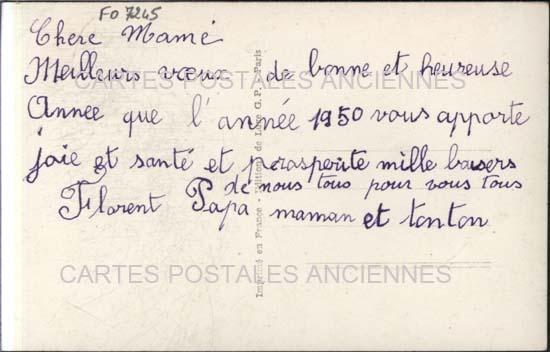 FO 7245
Chere Mamé
Meilleurs vœux de bonne et heureuse
Année que l'année 1950 vous apporte
joie et santé et prosperite mille baisers
de nous tous pour vous tous
Florent Papa maman et tonton
CARTES POSTALES ANCIENNES
CARTES POSTALES ANCIENNES
Imprimé en France - Editions de Luxe G. P. - Paris